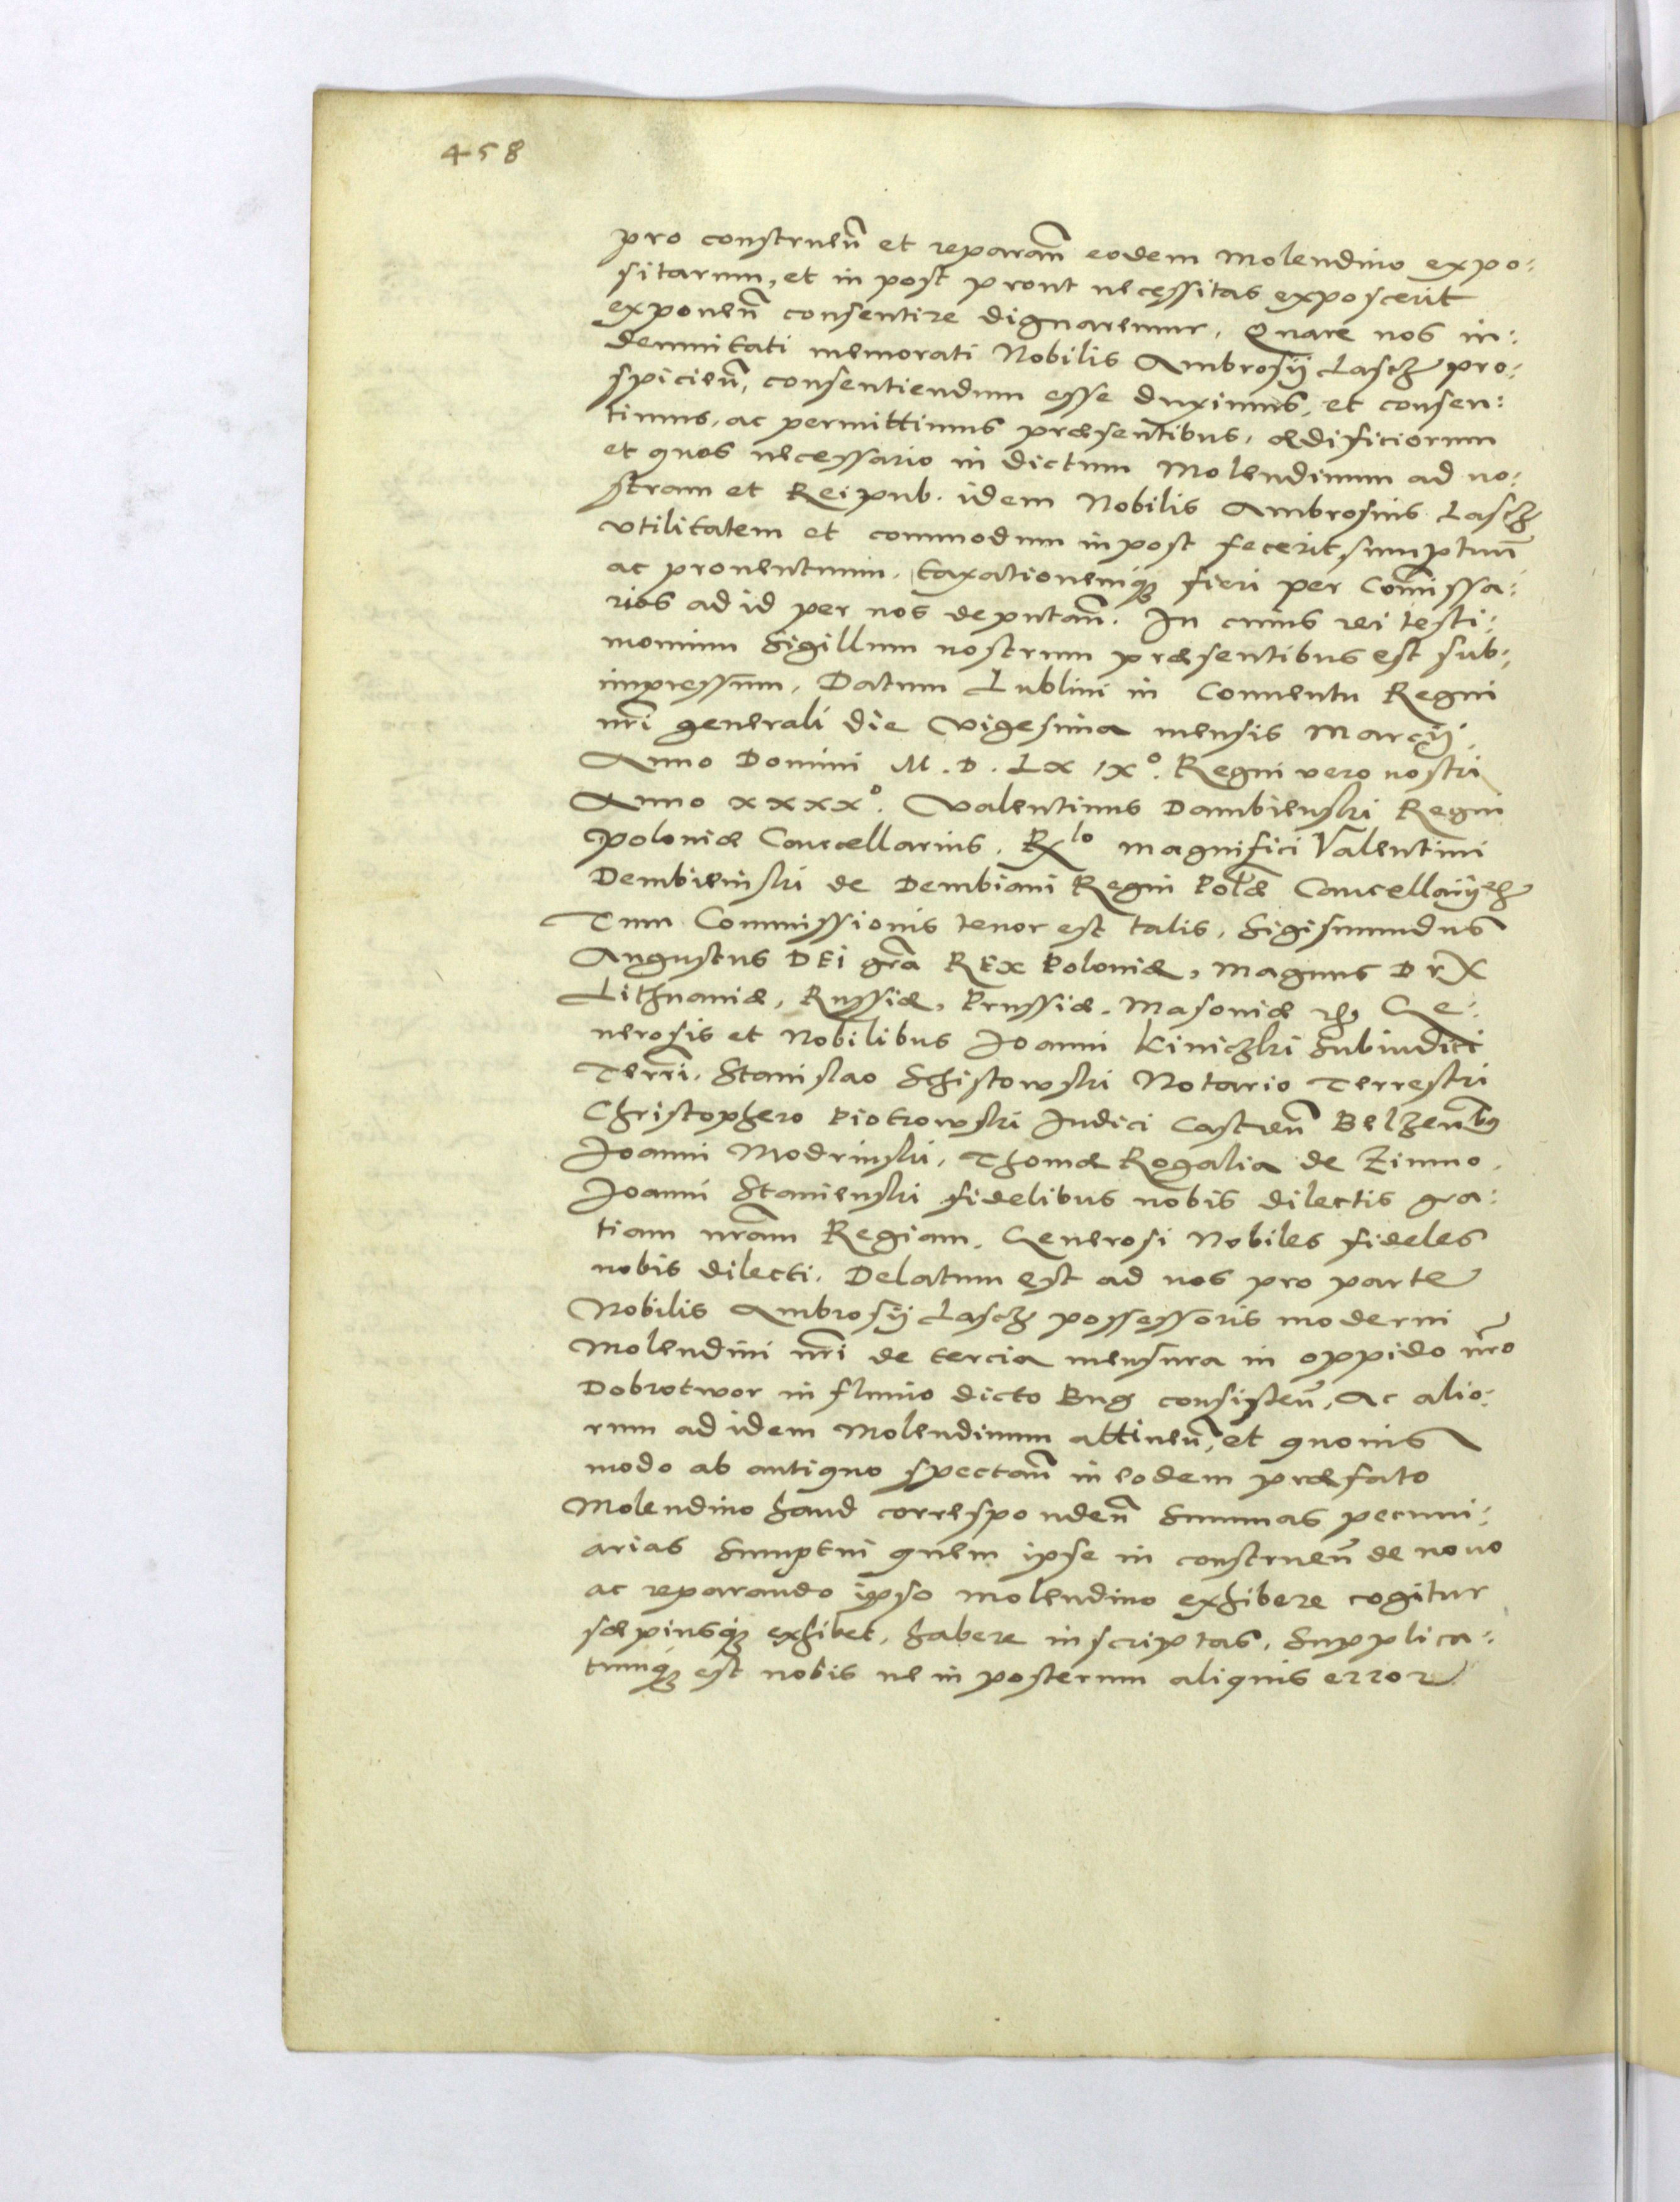 458
pro construen̄ et reparan̄ eodem Molendino expo:
sitarum, et in post prout necessitas exposcerit
exponen̄ consentire dignaremur. Quare nos in:
demnitati memorati Nobilis Ambrosÿ Lascz pro:
spicien̄, consentiendum esse duximus, et consen:
timus, ac permittimus præsentibus, ædificiorum
et quos necessario in dictum Molendinum ad no:
stram et Reipub. idem Nobilis Ambrosius Lascz
vtilitatem et commodum inpost fecerit sumptuum̄
ac prouentuum, taxationemq3 fieri per Com̄issa:
rios ad id per nos deputan̄. In cuius rei testi:
monium Sigillum nostrum præsentibus est sub:
impressum. Datum Lublini in Conuentu Regni
nr̄i generali die Vigesima mensis Marcÿ,
Anno Domini M. D. LX IXº. Regni vero nostri
Anno XXXXº. Valentinus Dambienski Regni
Poloniæ Cancellarius. Rlo magnifici Valentini
Dembienski de Dembiani Regni Pol̄æ Cancellarÿ etc
Tum Commissionis tenor est talis. Sigismundus
Augustus DEi gr̄a REX Poloniæ, magnus Dux
Lithuaniæ, Russiæ, Prussiæ, Masouiæ etc Ge:
nerosis et Nobilibus Joanni Kiniczki Subiudici
Terrı̄, Stanislao Schistowski Notario Terrestri
Christophero Piotrowski Judici Castren̄ Belzen̄bus
Joanni Modrinski, Thomæ Rogalia de Zimno,
Joanni Stanienski fidelibus nobis dilectis gra:
tiam nr̄am Regiam. Generosi Nobiles fideles
nobis dilecti. Delatum est ad nos pro parte
Nobilis Ambrosÿ Lascz possessoris moderni
Molendini nr̄i de tercia mensura in oppido nr̄o
Dobrotwor in fluuio dicto Bug consisten̄, Ac alio:
rum ad idem Molendinum attinen̄, et quouis
modo ab antiquo spectan̄ in eodem præfato
Molendino haud corresponden̄ Summas pecuni:
arias Sumptui quem ipse in construen̄ de nouo
ac reparando ipso molendino exhibere cogitur
sæpiusq3 exhibet, habere inscriptas. Supplica:
tumq3 est nobis ne in posterum aliquis error